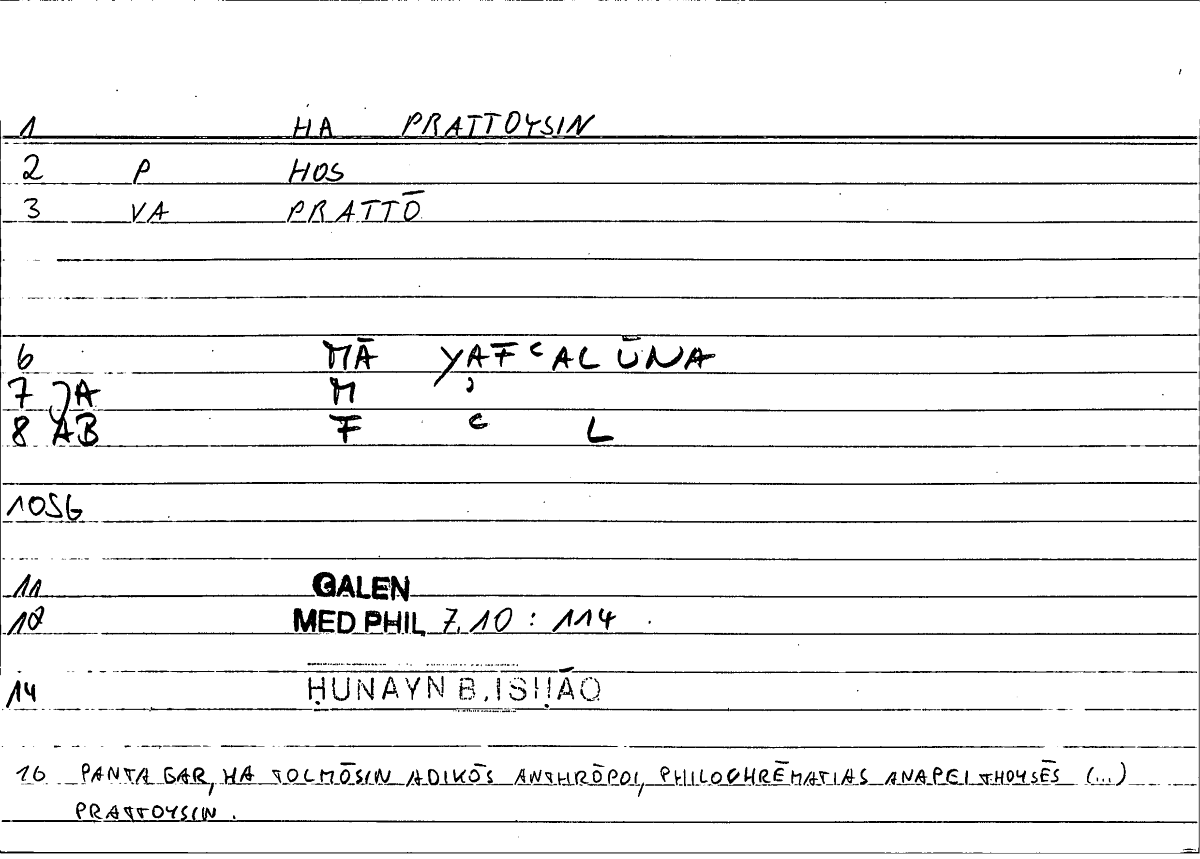 1 HA PRATTOYSIN
2 P HOS
3 VA PRATTŌ
6 MĀ YAFʿALŪNA
7 JA M ʾ
8 AB F ʿ L
10SG
11 GALEN
12 MED PHIL 7,10 : 114
14 ḤUNAYN B. ISḤĀQ
16 PANTA GAR, HA TOLMŌSIN ADIKŌS ANTHRŌPOI, PHILOCHRĒMATIAS ANAPEITHOYSĒS (...)
PRATTOYSIN.